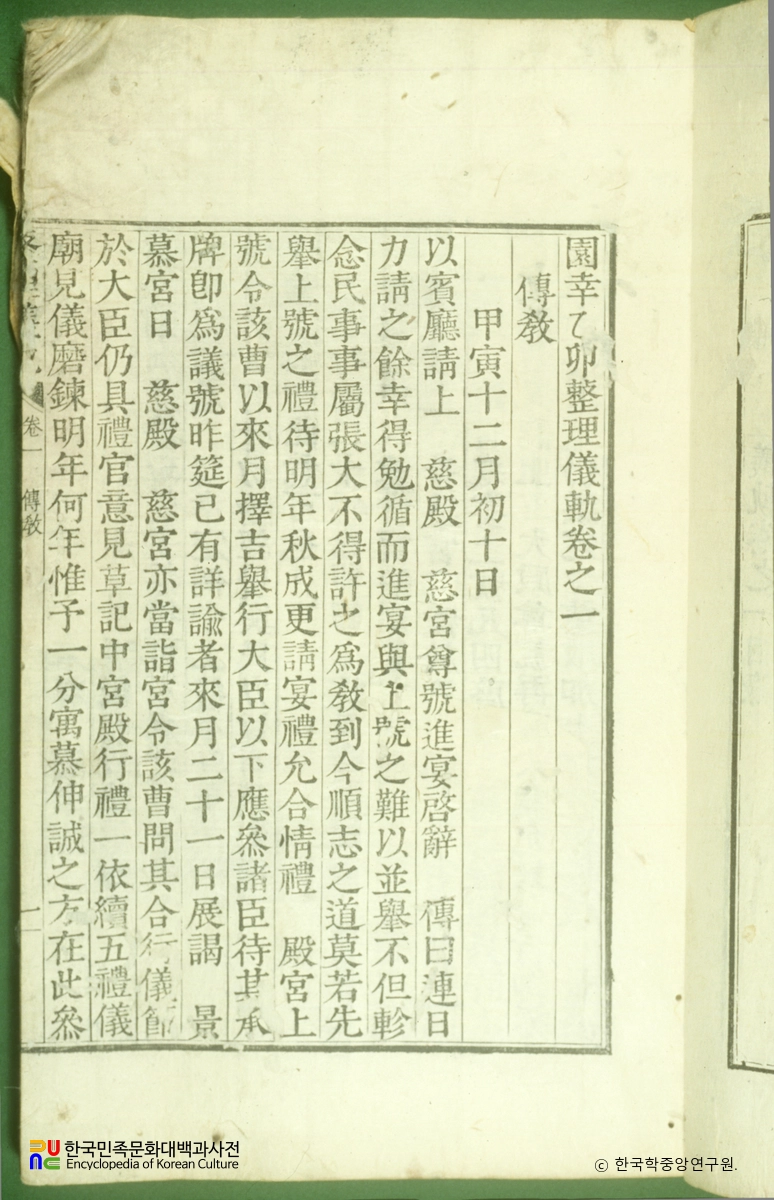 園幸乙卯整理儀軌卷之一
傳敎
甲寅十二月初十日
以賓廳請上 慈殿 慈宮尊號進宴啓辭 傳曰連日
力請之餘幸得勉循而進宴與上號之難以並舉不但軫
念民事事屬張大不得許之爲敎到今順志之道莫若先
舉上號之禮待明年秋成更請宴禮允合情禮 殿宮上
號令該曹以來月擇吉舉行大臣以下應叅諸臣待其承
牌卽爲議號昨筵已有詳諭者來月二十一日展謁 景
慕宮日 慈殿 慈宮亦當詣宮令該曹問其合行儀節
於大臣仍具禮官意見草記中宮殿行禮一依續五禮儀
廟見儀磨鍊明年何年惟予一分寓慕伸誠之方在此叅
卷一 傳敎 一
한국민족문화대백과사전
Encyclopedia of Korean Culture
© 한국학중앙연구원.